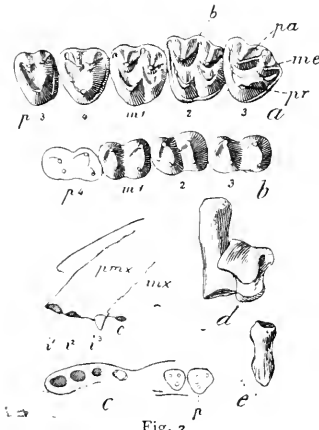 b
pa
me
pr
p 3 4 m 1 2 3 a
p 4 m 1 2 3 b
pmx
mx
c
i¹ i² i³
d
c p e
Fig. 2